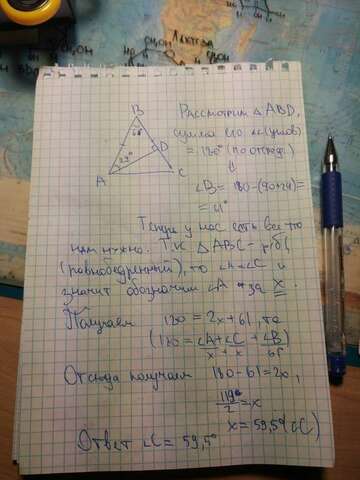 ОН
ЛАКТОЗА
ОН
B
61°
29°
D
A
C
Рассмотрим △ ABD,
сумма его ∠∠(углов)
= 180° (по
⇓
∠B = 180-(90+29)=
= 61°
Теперь у нас есть все что
нам нужно. Т.к △ ABC - р/б
(равнобедренный), то ∠A=∠C и
значит обозначим ∠A за x.
Получаем 180 = 2x+61, то
(180 = ∠A+∠C+∠B)
x + x 61
Отсюда получаем 180-61=2x,
119°/2 = x
x = 59,5°(∠C)
Ответ ∠C = 59,5°